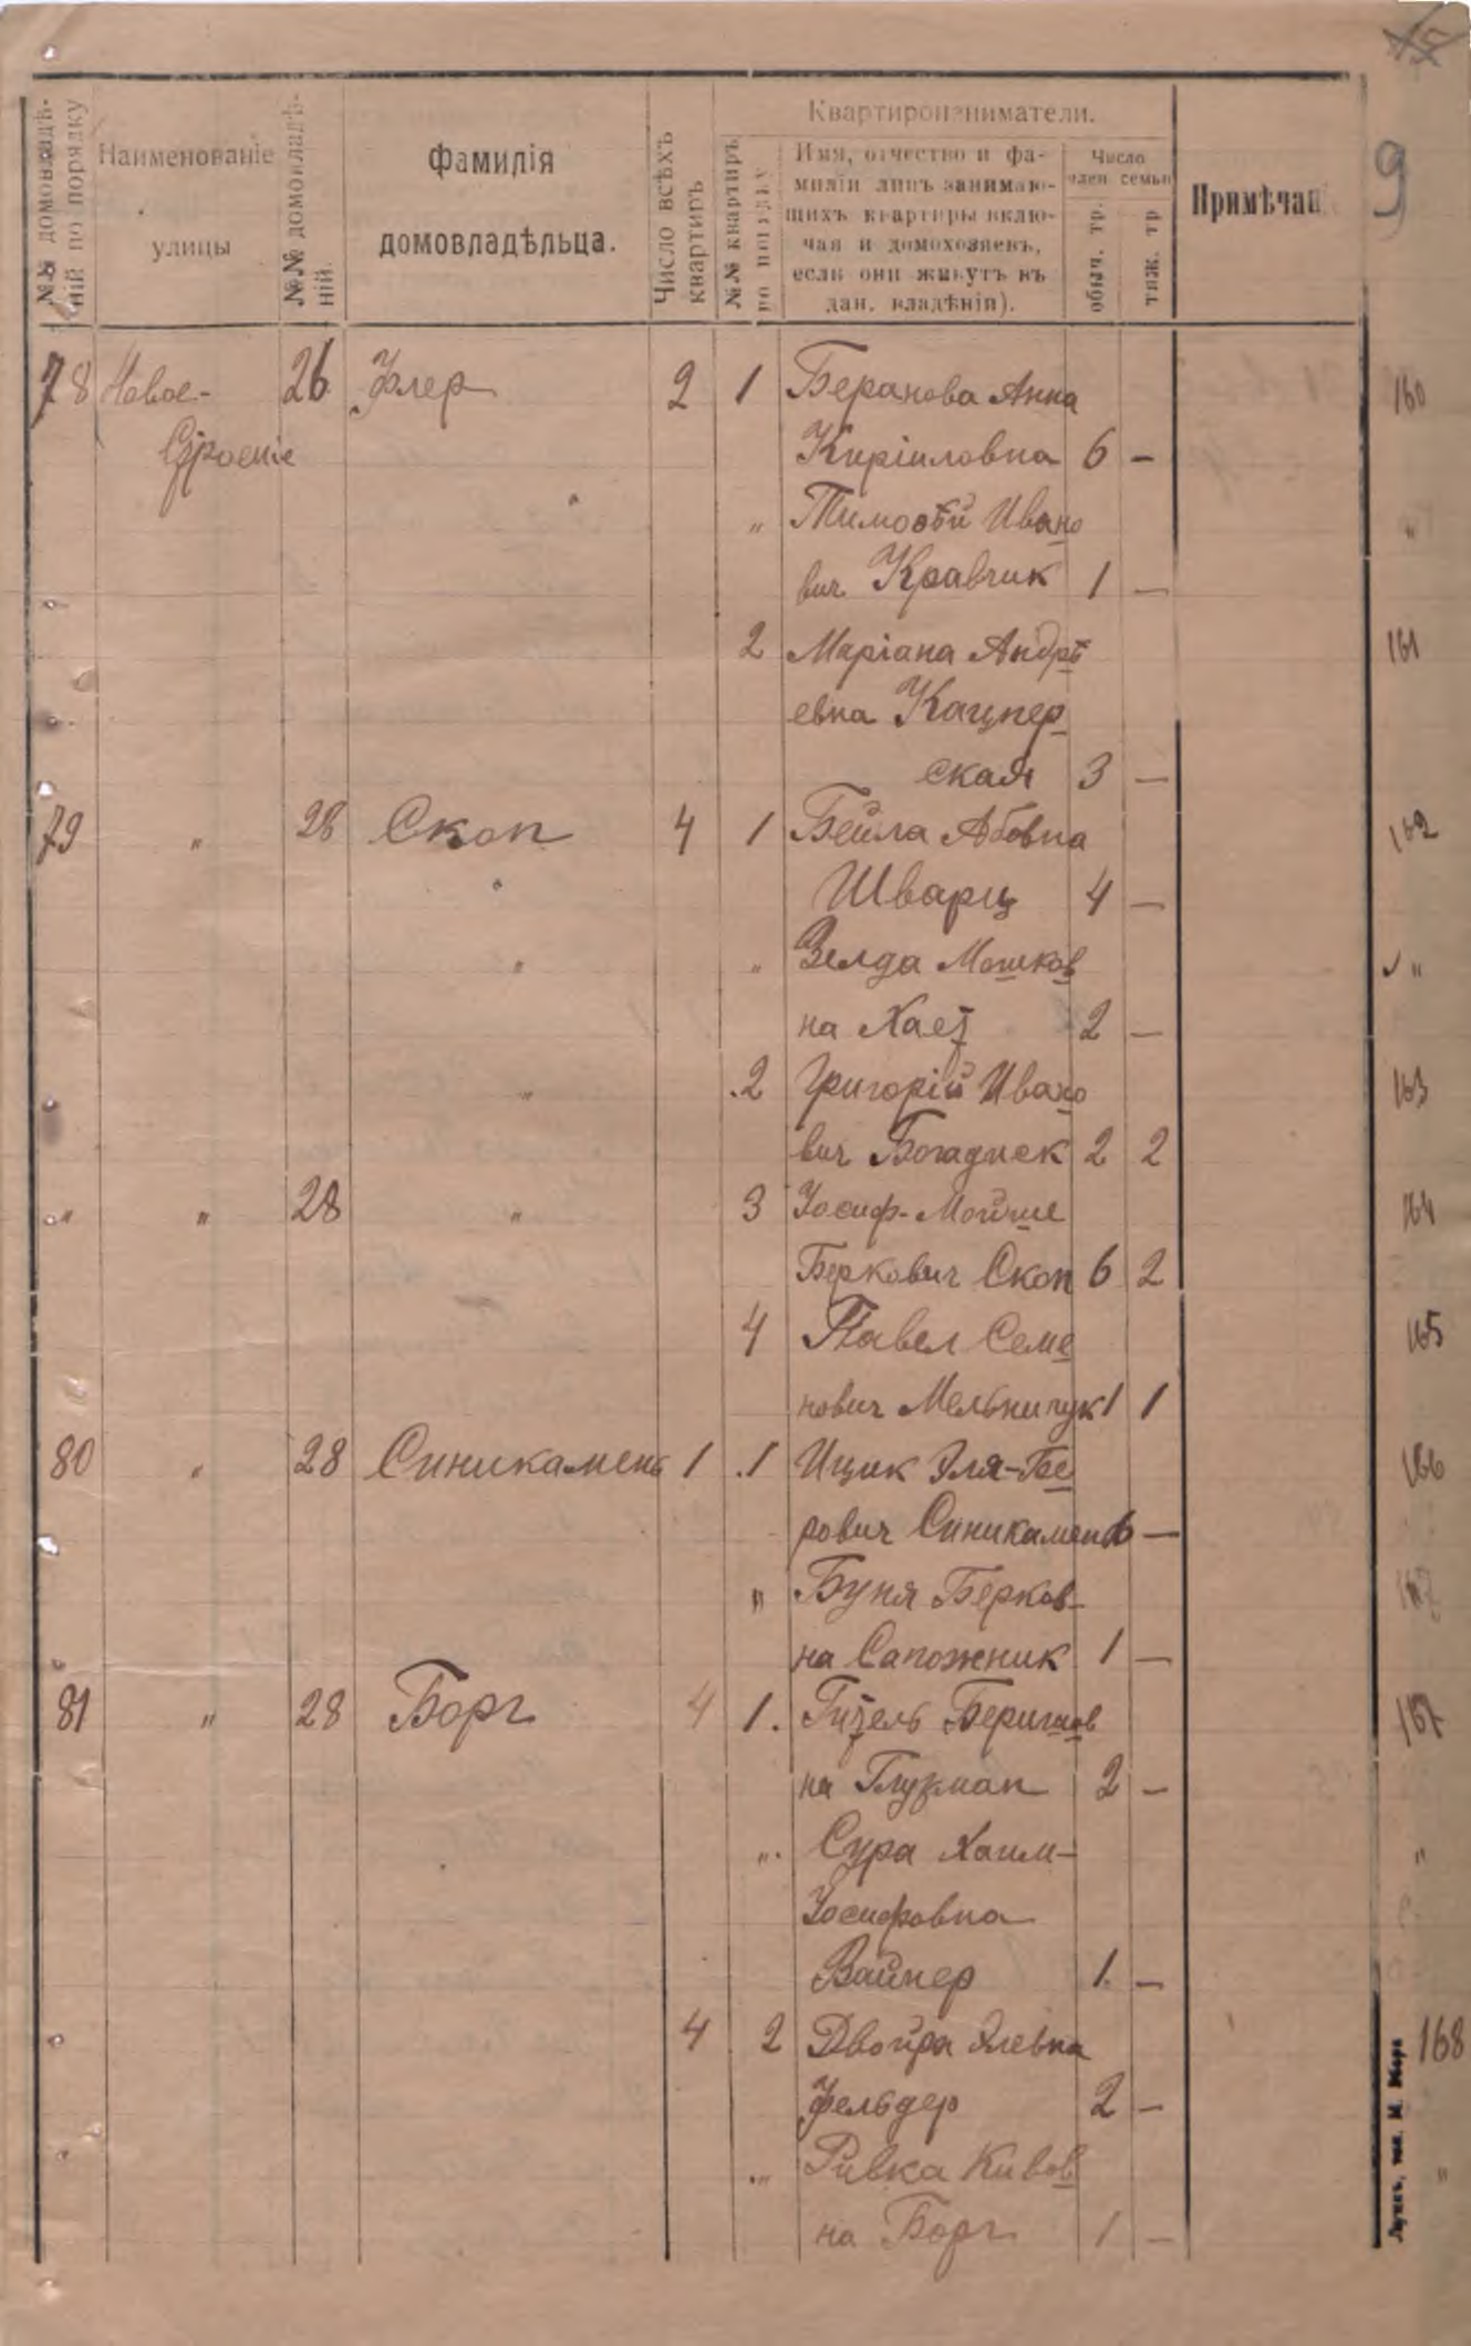 15
9
№№ домовладѣ-ній по порядку
Наименованіе улицы
№№ домовладѣ-ній.
Фамилія домовладѣльца.
Число всѣхъ квартиръ
Квартиронаниматели.
№№ квартиръ по порядку
Имя, отчество и фа-
миліи лицъ занимаю-
щихъ квартиры вклю-
чая и домохозяевъ,
если они живутъ въ
дан. владѣніи).
Число
член. семьи
обыч. тр.
тяж. тр
Примѣчан
78 Новое- 26 Флер 2 1 Беранова Анна 160
Строеніе Кириловна 6 —
" Тимофѣй Ивано "
вич Кравчик 1 —
2 Маріана Андрѣ 161
евна Кацпер
ская 3 —
79 " 28 Скоп 4 1 Бейла Абовна 162
" Шварц 4 —
" " Зелда Мошков "
на Хает 2 —
" 2 Григорій Ивано 163
вич Богаднек 2 2
" " 28 " 3 Іосиф-Мойше 164
Беркович Скоп 6 2
4 Павел Семе 165
нович Мельничук 1 1
80 " 28 Синикамень 1 1 Ицик Эля-Бе 166
рович Синикамень 6 —
" Буня Берков-
на Сапожник 1 —
81 " 28 Борг 4 1. Гитель Беришов 167
на Глузман 2 —
" Сура Хаим- "
Іосифовна
Вайнер 1. —
4 2 Двойра Элевна 168
Фельдер 2 —
" Ривка Кивов "
на Борг 1 —
Луцкъ, тип.